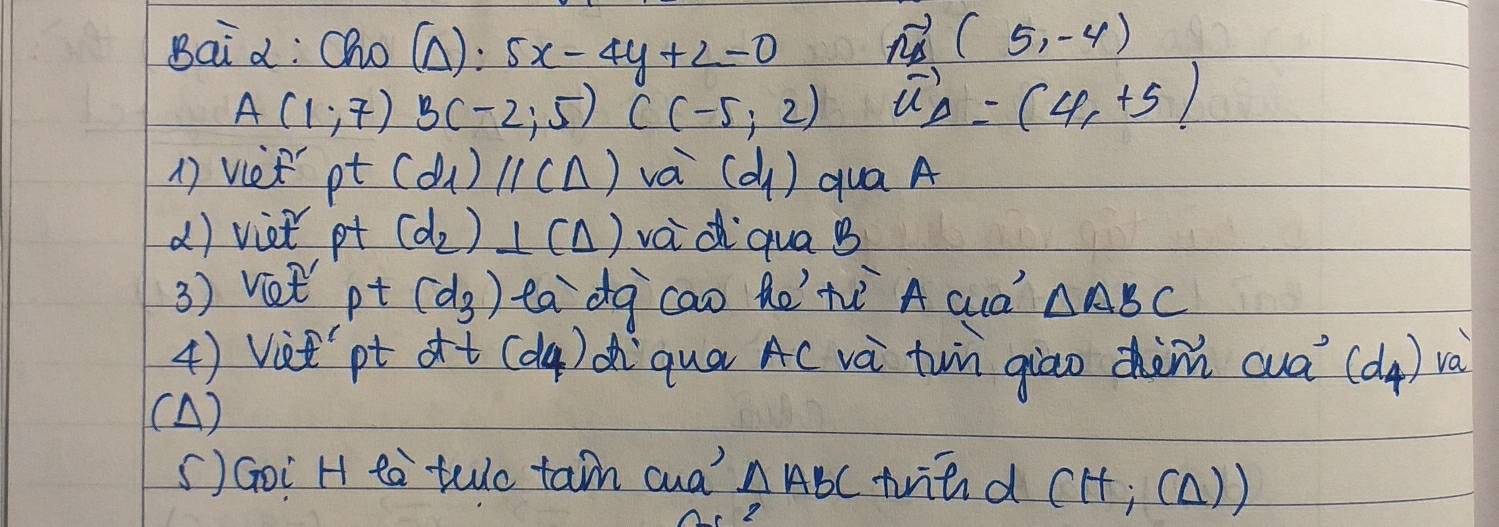 Bài 2: Cho (Δ): 5x - 4y + 2 = 0 n⃗Δ (5, -4)
A(1; 7) B(-2; 5) C(-5; 2) u⃗Δ = (4, +5)
1) Viết pt (d1) // (Δ) và (d1) qua A
2) Viết pt (d2) ⊥ (Δ) và đi qua B
3) Viết pt (d3) là đg cao kẻ từ A của ΔABC
4) Viết pt đt (d4) đi qua AC và tìm giao điểm của (d4) và
(Δ)
5) Gọi H là trực tâm của ΔABC tính d (H; (Δ))